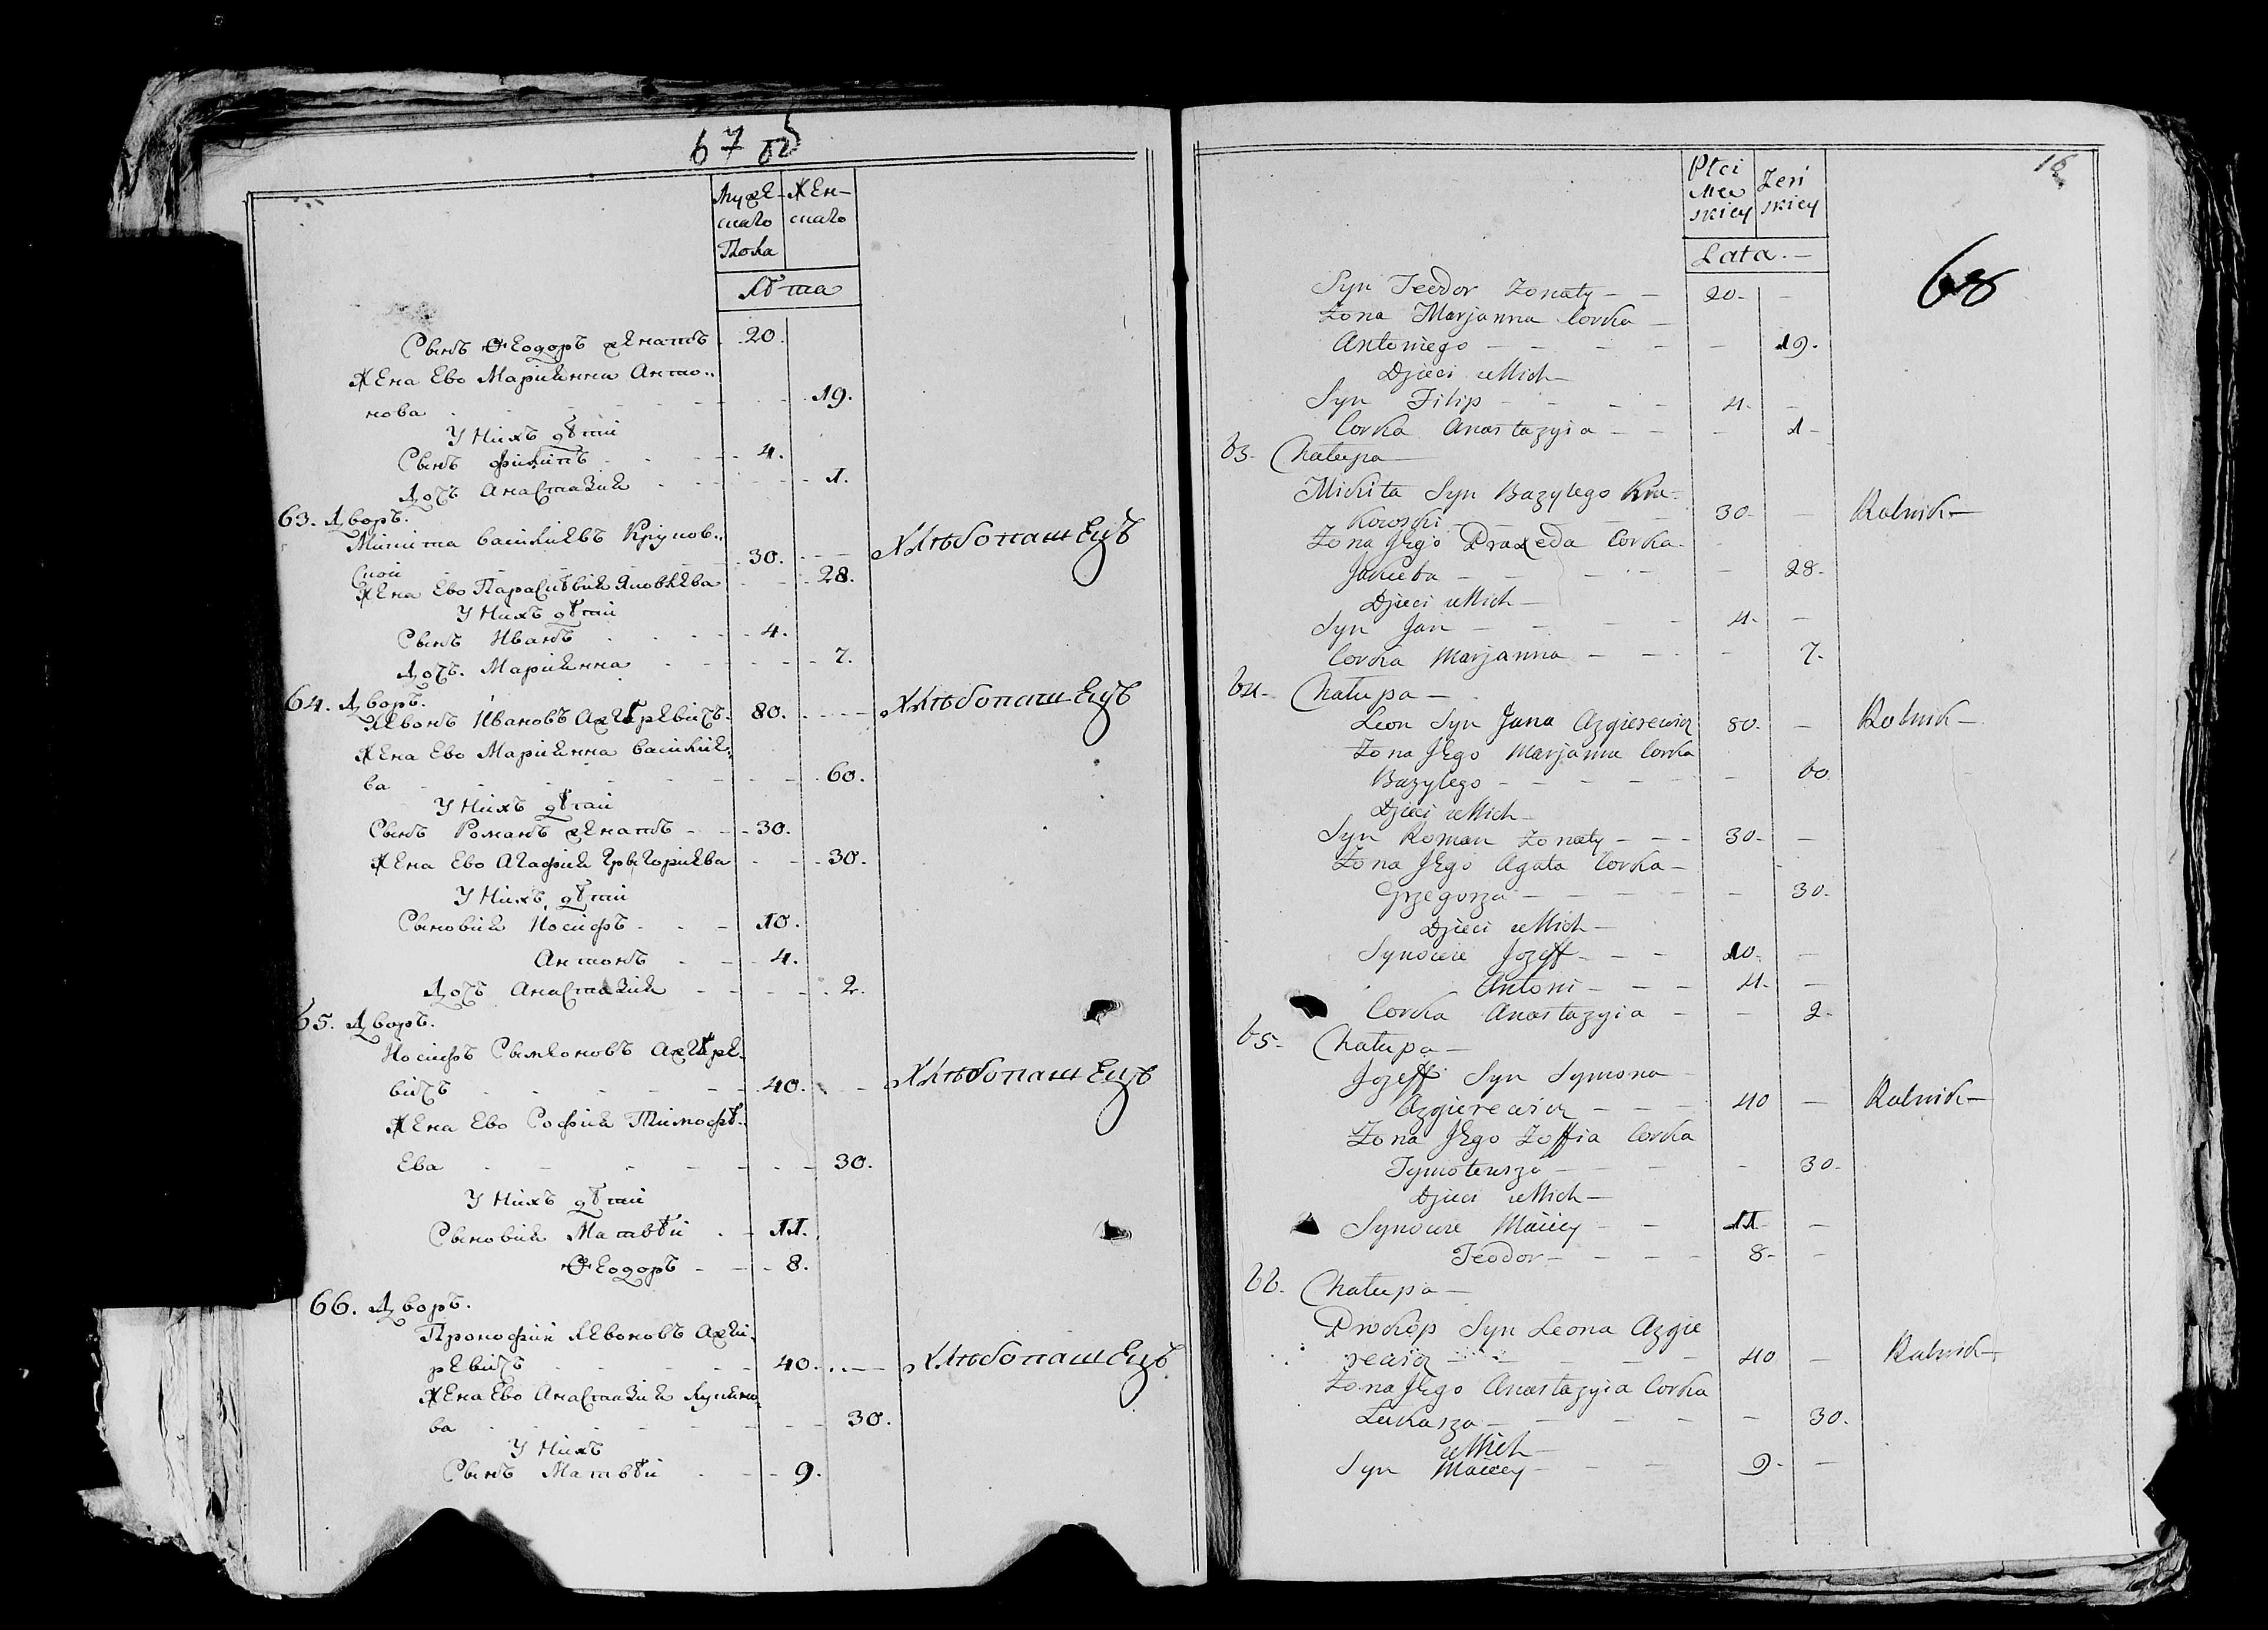 67 об
Муже- Жен-
скаго скаго
Пола
Лѣта
Сынъ Ѳеодоръ женатъ 20.
Жена Ево Марианна Анто..
нова - - - 19.
У Нихъ дѣти
Сынъ филипъ - - - 4.
Дочь Анастазия - - - 1.
63. Дворъ.
Микита василиевъ Круков..
ской - - - 30. - - - Хлѣбопашецъ
Жена Ево Параскѣвия Яковлева - - 28.
У Нихъ дѣти
Сынъ Иванъ - - - 4.
Дочь. Марианна - - - 7.
64. Дворъ.
Левонъ Ивановъ Ажгѣревичъ. 80. - - - Хлѣбопашецъ
Жена Ево Марианна василие..
ва - - - 60.
У Нихъ дѣти
Сынъ Романъ женатъ - - 30.
Жена Ево Агафия Григориева - - 30.
У Нихъ дѣти
Сыновия Иосифъ - - - 10.
Антонъ - - - 4.
Дочь Анастазия - - - 2.
65. Дворъ.
Иосифъ Сымоновъ Ажгѣре..
вичъ - - - 40. - - Хлѣбопашецъ
Жена Ево София Тимофѣ..
Ева - - - 30.
У Нихъ дѣти
Сыновия Матвѣй - - 11.
Ѳеодоръ - - - 8.
66. Дворъ.
Прокофий Левоновъ Ажги..
ревичъ - - - 40. - - - Хлѣбопашецъ
Жена Ево Анастазия Лукино..
ва - - - 30.
У Нихъ
Сынъ Матвѣй - - - 9.
16
Płci Zeń
Mez skiey
skiey
Lata. -
68
Syn Teodor Zonaty - - 20 - -
Zona Marjanna Corka -
Antoniego - - - - 19.
Dzieci u Nich -
Syn Filip - - - 4 - -
Corka Anastazyia - - - 1 -
63 - Chałupa -
Mickita Syn Bazylego Kru-
kowski - - - 30 - - Rolnik -
Zona Jego Praxeda Corka -
Jakuba - - - - 28 -
Dzieci u Nich -
Syn Jan - - - 4 - -
Corka Marjanna - - - 7 -
64 - Chałupa -
Leon Syn Jana Azgierewicz 80 - - Rolnik -
Zona Jego Marjanna Corka
Bazylego - - - - 60
Dzieci u Nich -
Syn Roman Zonaty - - - 30 - -
Zona Jego Agata Corka -
Grzegorza - - - - 30 -
Dzieci u Nich -
Synowie Jozeff - - - 10 - -
Antoni - - - 4 - -
Corka Anastazyia - - 2 -
65 - Chałupa -
Jozeff Syn Symona
Azgierewicz - - - 40 - Rolnik -
Zona Jego Zoffia Corka
Tymoteusza - - - - 30 -
Dzieci u Nich -
Synowie Maciey - - 11 - -
Teodor - - - 8 - -
66. Chałupa -
Prokop Syn Leona Azgie
rewicz - - - 40 - Rolnik -
Zona Jego Anastazyia Corka
Łukasza - - - - 30 -
u Nich -
Syn Maciey - - - 9 - -